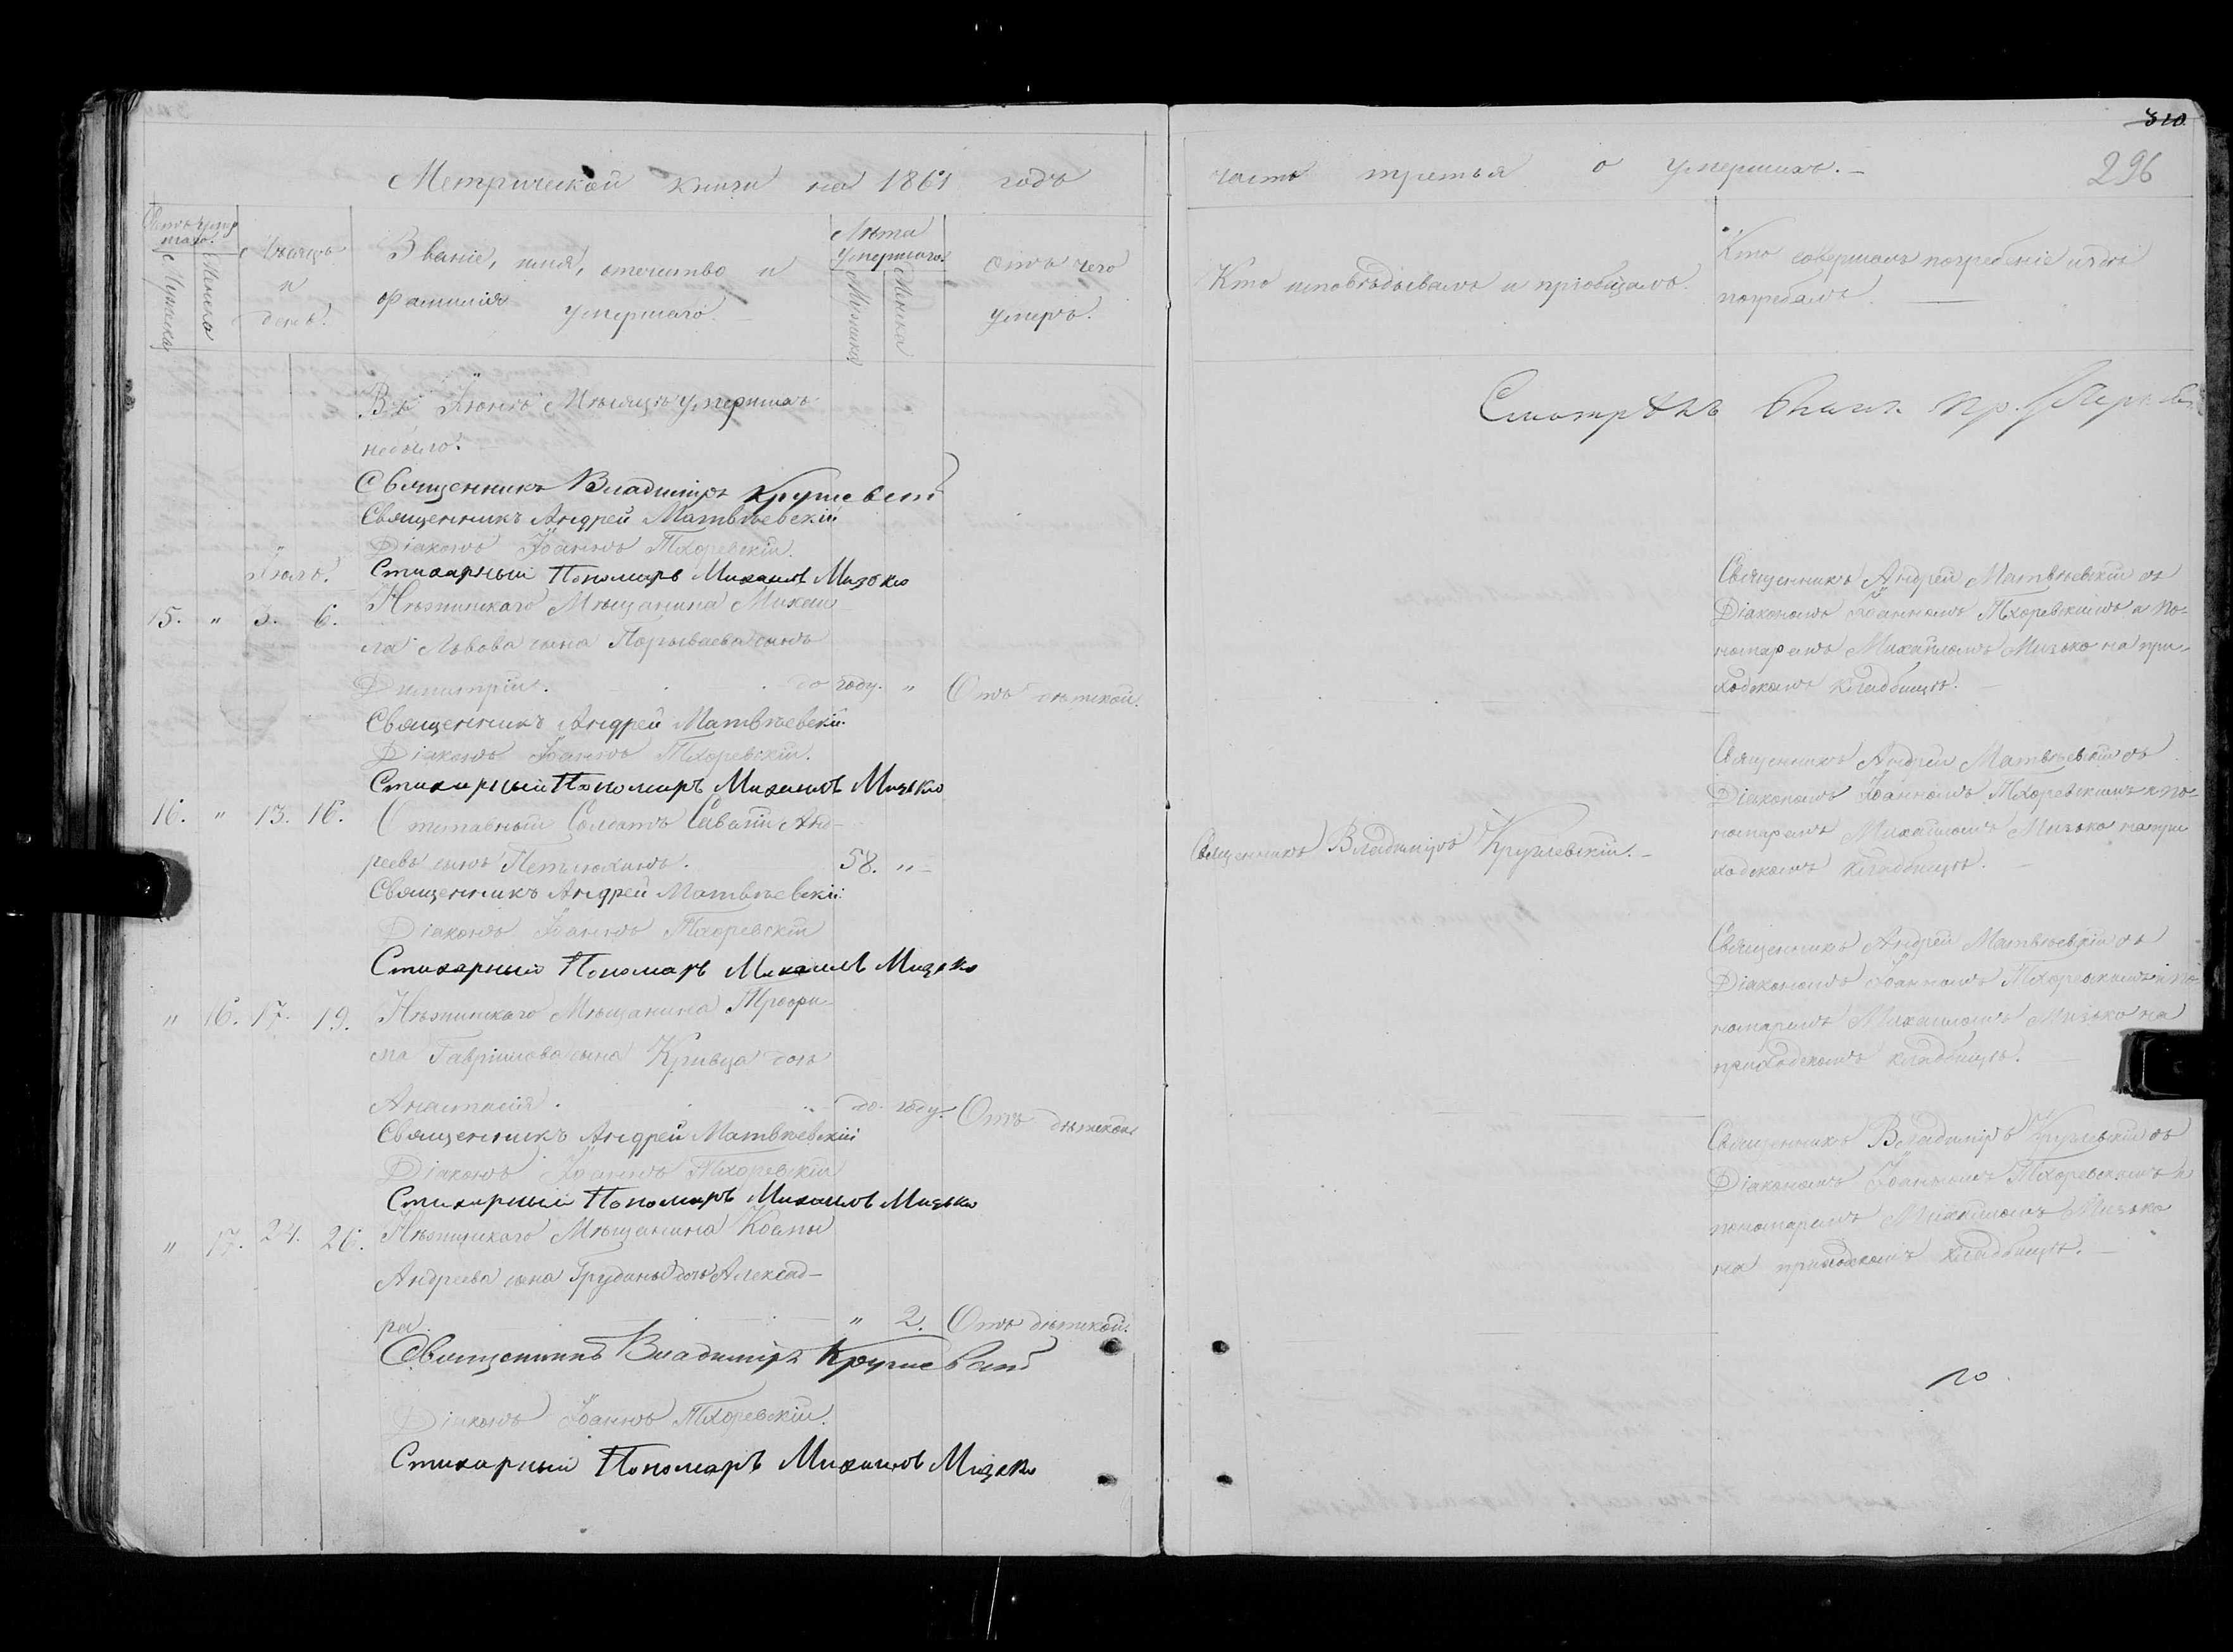 310
296
Метрической книги на 1861 годъ
часть третья о умершихъ.
Счетъ умер
шаго.
Мужеска
Женска
Мѣсяцъ
и
день.
Званіе, имя, отечество и
фамилія умершаго
Лѣта
умершаго.
Мужика
Женска
Отъ чего
умеръ.
Кто исповѣдывалъ и пріобщалъ.
Кто совершалъ погребеніе и гдѣ
погребалъ.
Въ Іюнѣ Мѣсяцѣ умершихъ
небыло.
Смотрѣлъ
Священникъ Владиміръ Крушевскій
Священникъ Андрей Матвѣевскій
Діаконъ Іоаннъ Тхоревскій.
Стихарный Пономарь Михаилъ Мизько
Іюль.
15. " 3. 6. Нѣжинскаго Мѣщанина Михаи-
ла Львова сына Порываева сынъ
Димитрій. до году. " Отъ дѣтской.
Священникъ Андрей Матвѣевскій съ
Діакономъ Іоанномъ Тхоревскимъ и по-
номаремъ Михаиломъ Мизько на при-
ходскомъ кладбищѣ.
Священникъ Андрей Матвѣевскій
Діаконъ Іоаннъ Тхоревскій.
Стихарный Пономарь Михаилъ Мизько
16. " 13. 16. Отставный Солдатъ Саватій Анд-
реевъ сынъ Петлюхинъ. 58. "
Священникъ Владиміръ Крушевскій.
Священникъ Андрей Матвѣевскій съ
Діакономъ Іоанномъ Тхоревскимъ и по-
номаремъ Михаиломъ Мизько на при
ходскомъ кладбищѣ.
Священникъ Андрей Матвѣевскій
Діаконъ Іоаннъ Тхоревскій
Стихарный Пономарь Михаилъ Мизько
" 16. 17. 19. Нѣжинскаго Мѣщанина Трофи-
ма Гавріилова сына Кривца дочь
Анастасія. до году. Отъ дѣтской
Священникъ Андрей Матвѣевскій съ
Діакономъ Іоанномъ Тхоревскимъ и по-
номаремъ Михаиломъ Мизько на
приходскомъ кладбищѣ.
Священникъ Андрей Матвѣевскій
Діаконъ Іоаннъ Тхоревскій
Стихарный Пономарь Михаилъ Мизько
" 17. 24. 26. Нѣжинскаго Мѣщанина Козмы
Андреева сына Грудины дочь Алексад-
ра. " 2. Отъ дѣтской.
Священникъ Владиміръ Крушевскій съ
Діакономъ Іоанномъ Тхоревскимъ и
пономаремъ Михаиломъ Мизько
на приходскомъ кладбищѣ.
Священникъ Владиміръ Крушевскій
Діаконъ Іоаннъ Тхоревскій.
Стихарный Пономарь Михаилъ Мизько